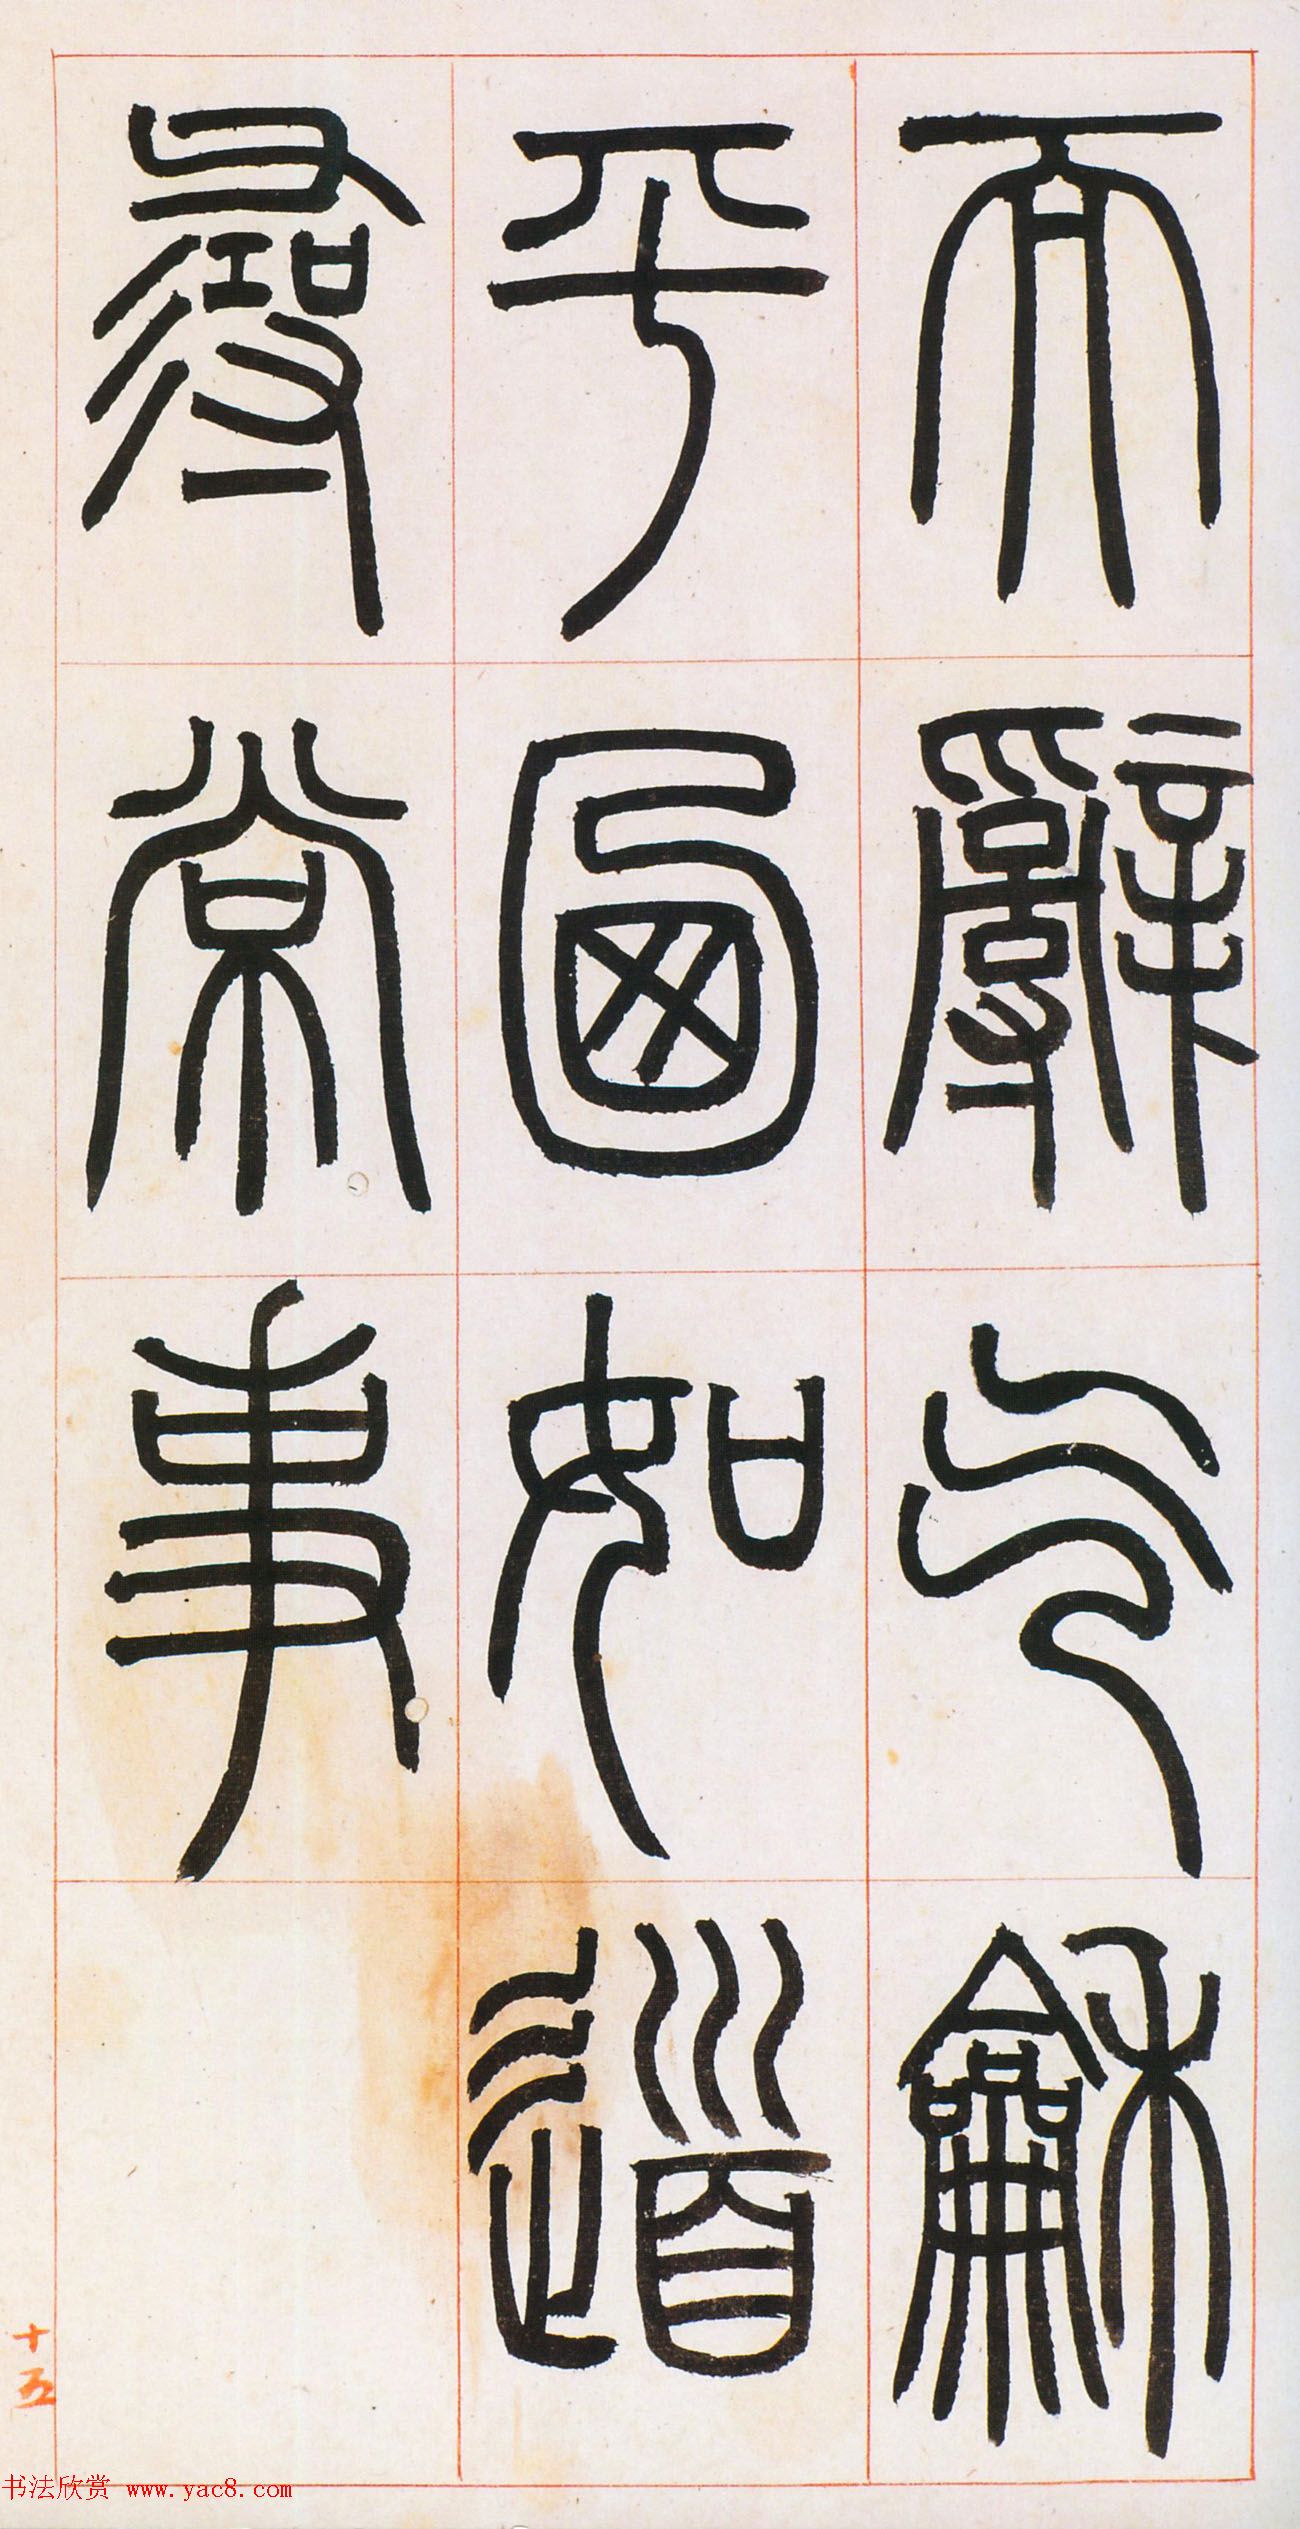 而辭气龢
平如道
尋常事
十五
书法欣赏 www.yac8.com